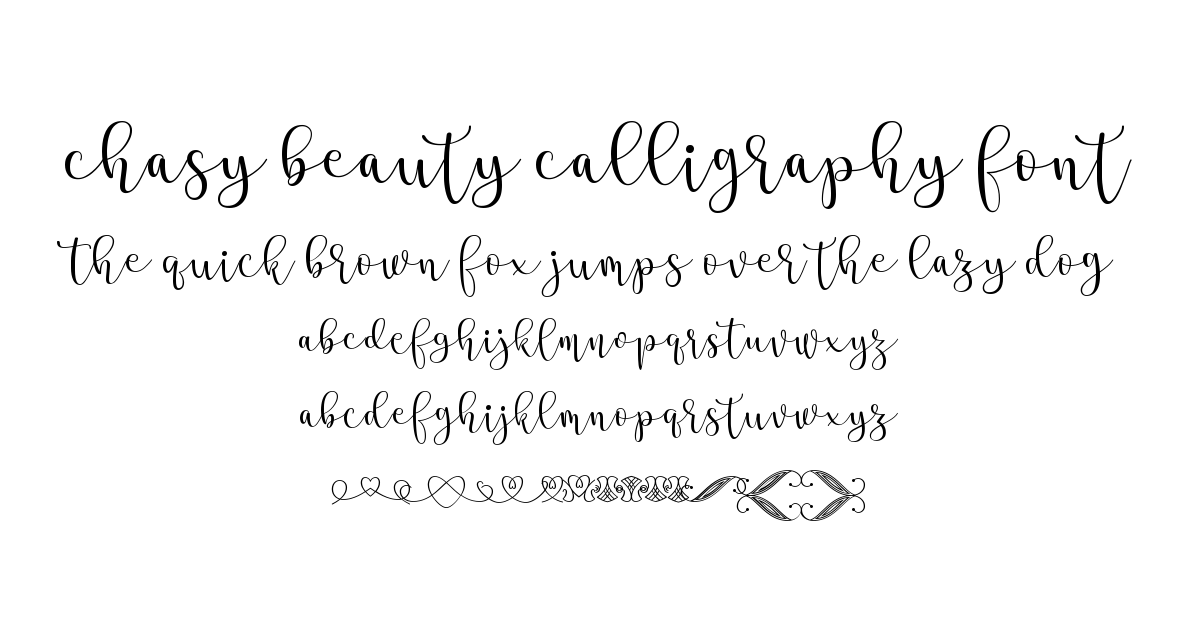 chasy beauty calligraphy font
the quick brown fox jumps over the lazy dog
abcdefghijklmnopqrstuvwxyz
abcdefghijklmnopqrstuvwxyz